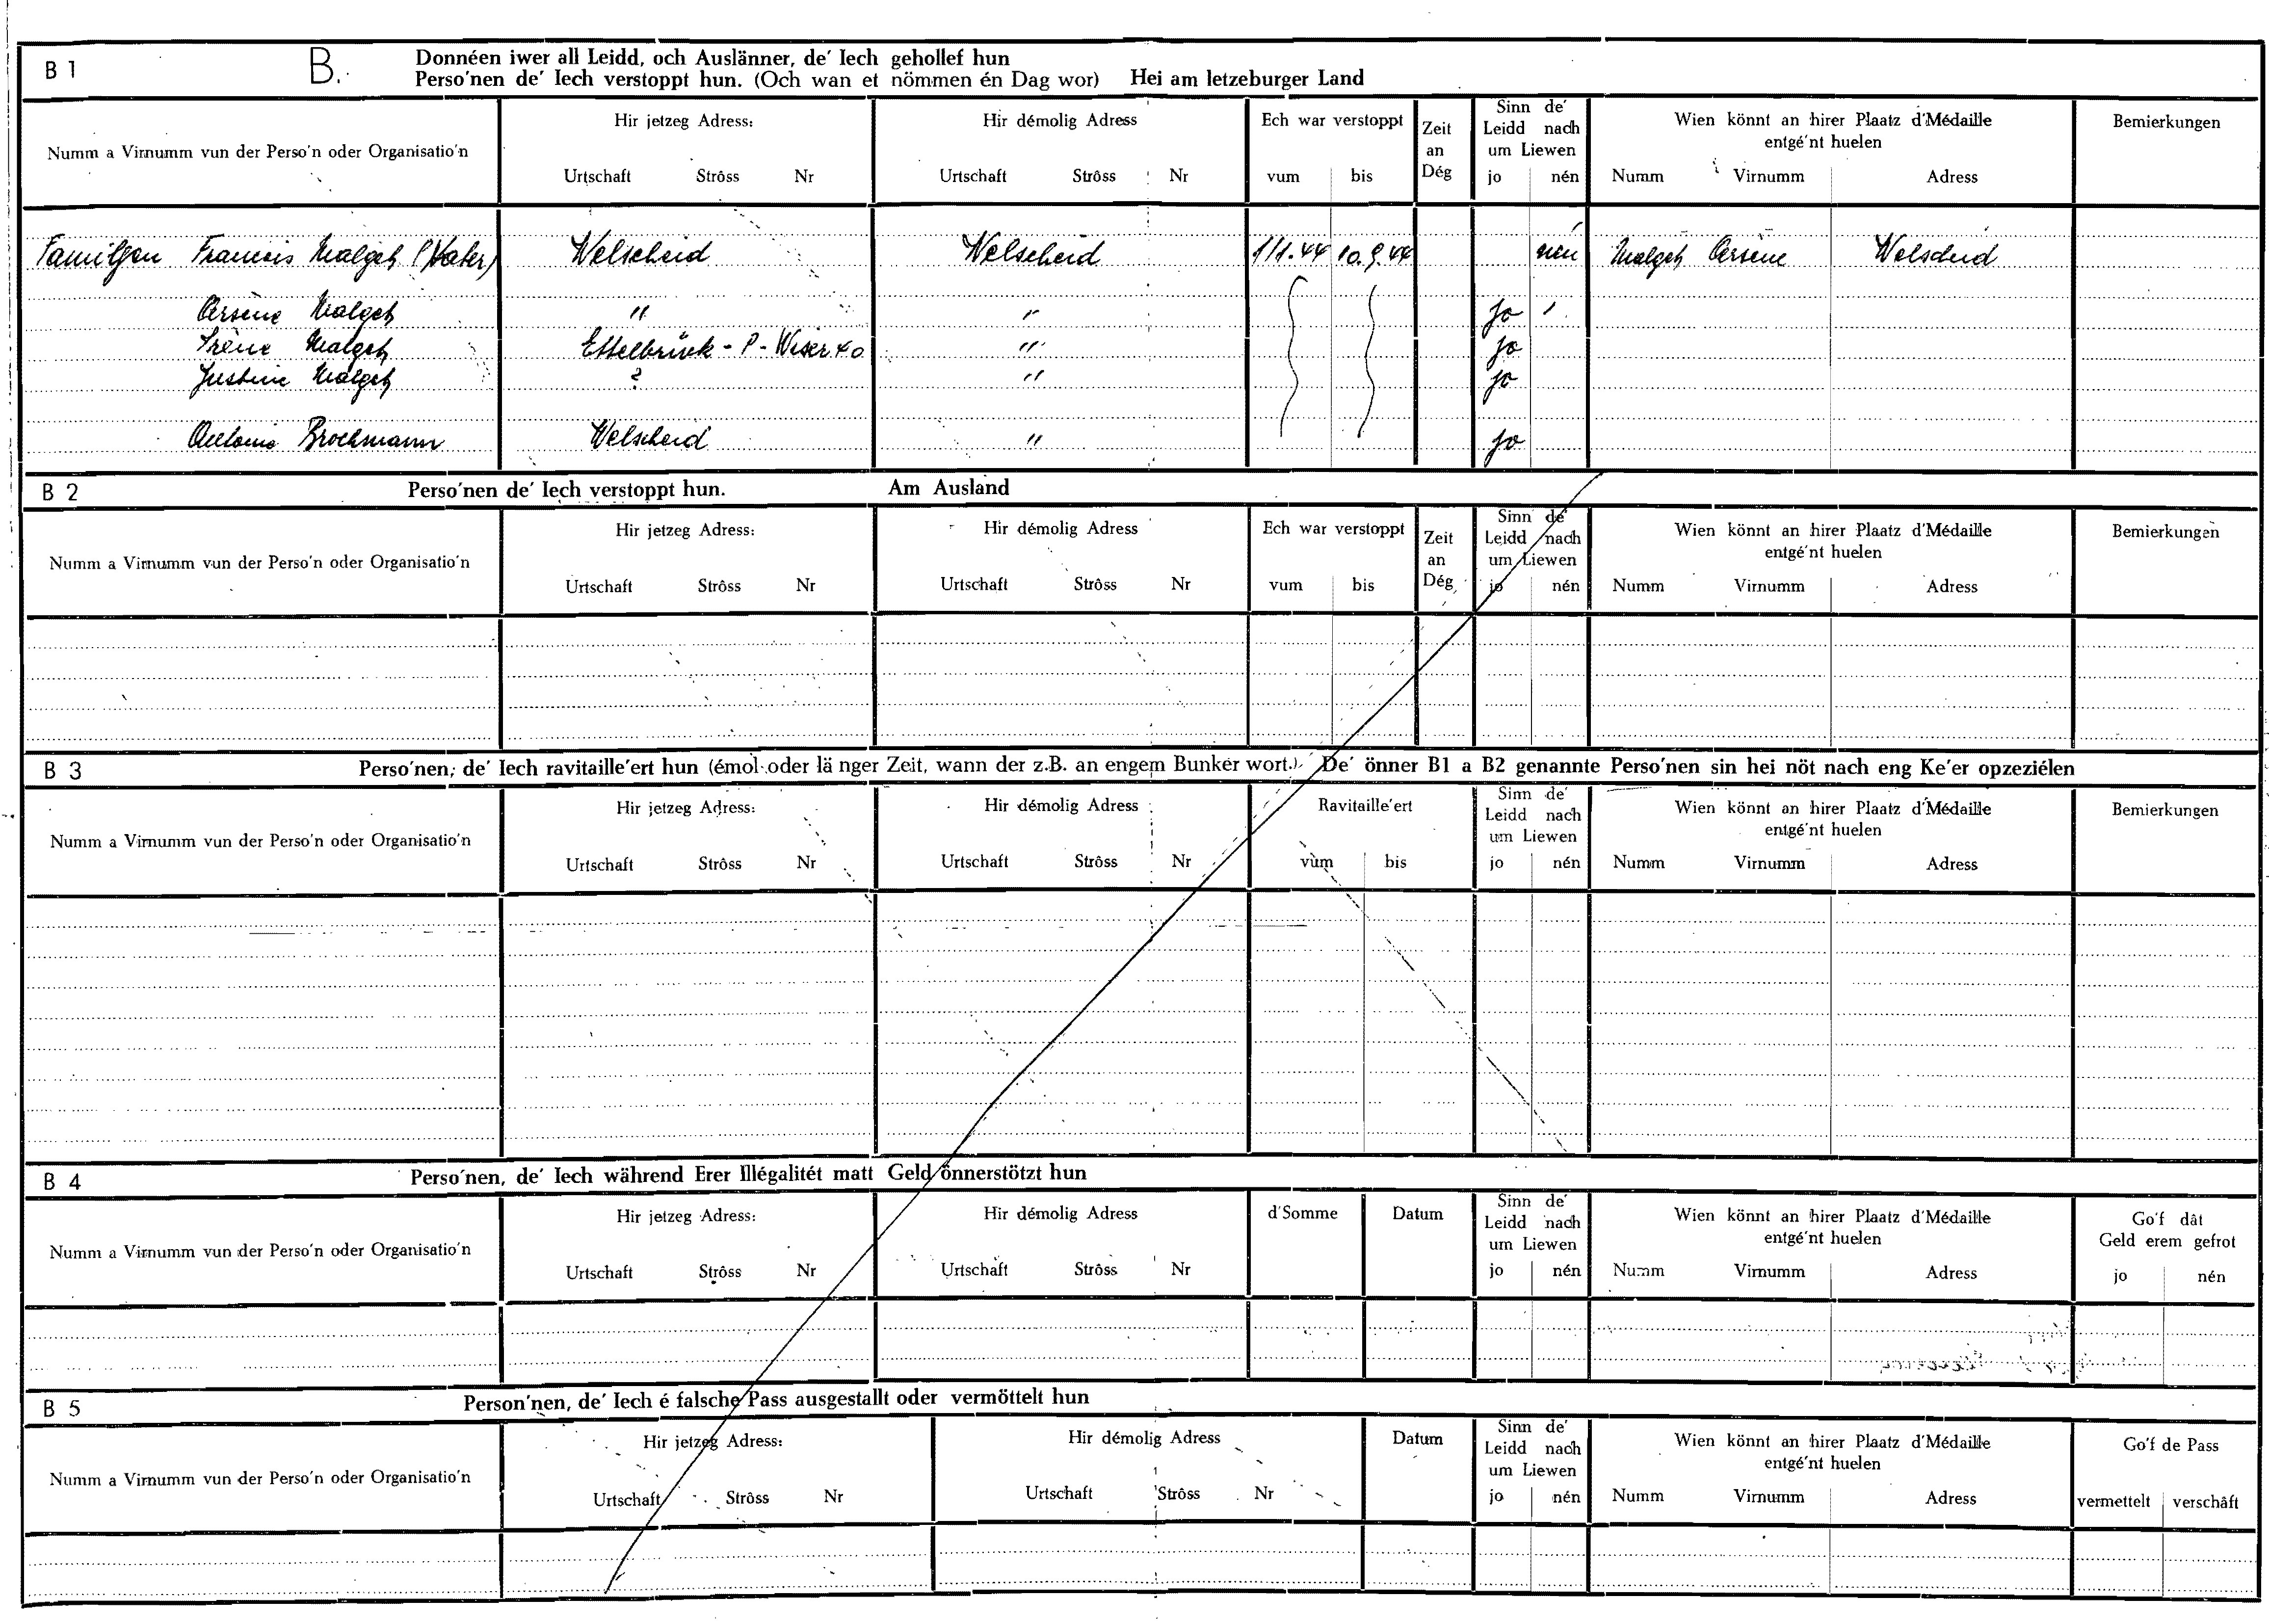 B 1 B. Donnéen iwer all Leidd, och Auslänner, de' Iech gehollef hun
Perso'nen de' Iech verstoppt hun. (Och wan et nömmen én Dag wor) Hei am letzeburger Land
Numm a Virnumm vun der Perso'n oder Organisatio'n
Hir jetzeg Adress:
Urtschaft Strôss Nr
Hir démolig Adress
Urtschaft Strôss Nr
Ech war verstoppt
vum bis
Zeit
an
Dég
Sinn de'
Leidd nach
um Liewen
jo nén
Wien könnt an hirer Plaatz d'Médaille
entgé'nt huelen
Numm Virnumm Adress
Bemierkungen
Francois Malget (Vater) Welscheid Welscheid 1/1.44 10.9.44 nén Malget Arsène Welscheid
Arsène Malget " " jo
Irène Malget Ettelbrück - P - Wiser 40 " jo
Justine Malget ? " jo
Brochmann Welscheid " jo
B 2 Perso'nen de' Iech verstoppt hun. Am Ausland
Numm a Virnumm vun der Perso'n oder Organisatio'n
Hir jetzeg Adress:
Urtschaft Strôss Nr
Hir démolig Adress
Urtschaft Strôss Nr
Ech war verstoppt
vum bis
Zeit
an
Dég
Sinn de'
Leidd nach
um Liewen
jo nén
Wien könnt an hirer Plaatz d'Médaille
entgé'nt huelen
Numm Virnumm Adress
Bemierkungen
B 3 Perso'nen, de' Iech ravitaille'ert hun (émol oder länger Zeit, wann der z.B. an engem Bunker wort.) De' önner B1 a B2 genannte Perso'nen sin hei nöt nach eng Ke'er opzeziélen
Numm a Virnumm vun der Perso'n oder Organisatio'n
Hir jetzeg Adress:
Urtschaft Strôss Nr
Hir démolig Adress
Urtschaft Strôss Nr
Ravitaille'ert
vum bis
Sinn de'
Leidd nach
um Liewen
jo nén
Wien könnt an hirer Plaatz d'Médaille
entgé'nt huelen
Numm Virnumm Adress
Bemierkungen
B 4 Perso'nen, de' Iech während Erer Illégalitét matt Geld önnerstötzt hun
Numm a Virnumm vun der Perso'n oder Organisatio'n
Hir jetzeg Adress:
Urtschaft Strôss Nr
Hir démolig Adress
Urtschaft Strôss Nr
d'Somme
Datum
Sinn de'
Leidd nach
um Liewen
jo nén
Wien könnt an hirer Plaatz d'Médaille
entgé'nt huelen
Numm Virnumm Adress
Go'f dât
Geld erem gefrot
jo nén
B 5 Person'nen, de' Iech é falsche Pass ausgestallt oder vermöttelt hun
Numm a Virnumm vun der Perso'n oder Organisatio'n
Hir jetzeg Adress:
Urtschaft Strôss Nr
Hir démolig Adress
Urtschaft Strôss Nr
Datum
Sinn de'
Leidd nach
um Liewen
jo nén
Wien könnt an hirer Plaatz d'Médaille
entgé'nt huelen
Numm Virnumm Adress
Go'f de Pass
vermettelt verschâft